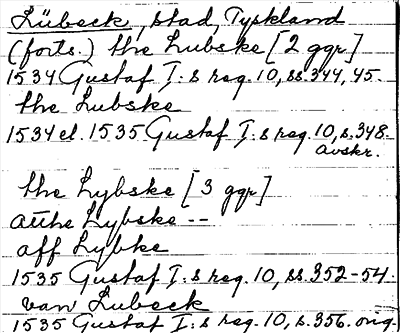 Lübeck, stad, Tyskland
(forts.) the Lubske [2 ggr]
1534 Gustaf I:s reg. 10, ss. 344, 45.
the Lubske
1534 el. 1535 Gustaf I:s reg. 10, s. 348.
avskr.
the Lybske [3 ggr]
aithe Lybske --
aff Lybke
1535 Gustaf I:s reg. 10, ss. 352-54.
van Lubeck
1535 Gustaf I:s reg. 10, s. 356. orig.